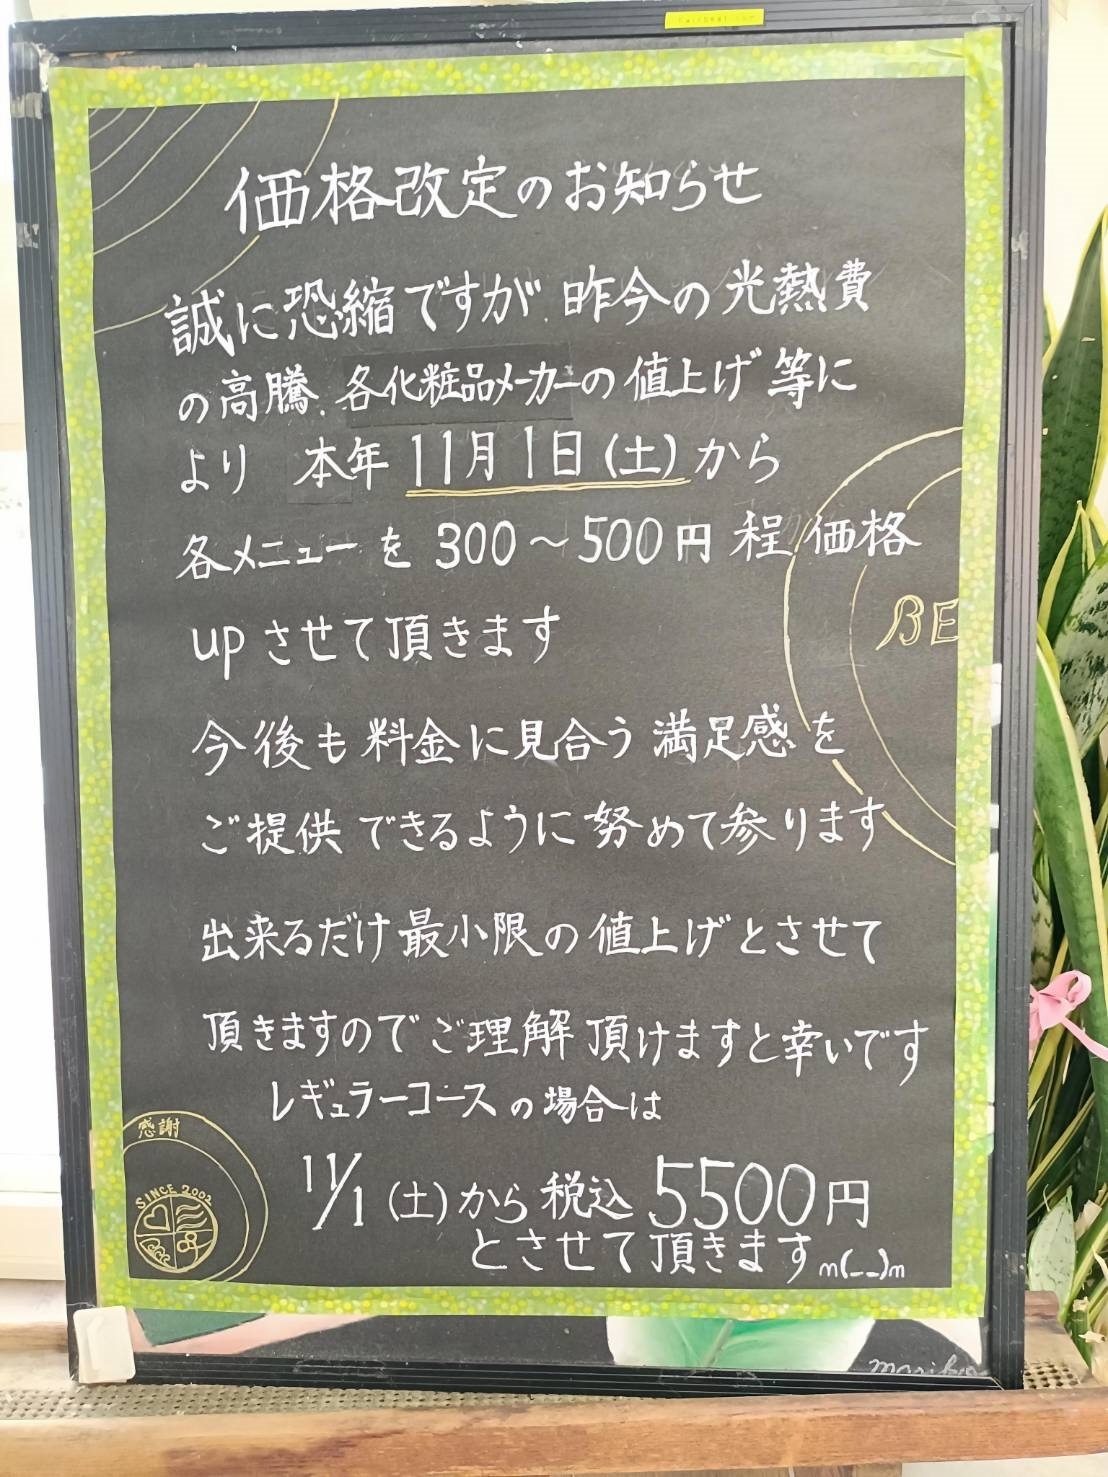 価格改定のお知らせ
誠に恐縮ですが 昨今の光熱費
の高騰、各化粧品メーカーの値上げ等に
より 本年 11月1日(土)から
各メニューを 300〜500円 程 価格
upさせて頂きます
BE
今後も料金に見合う満足感を
ご提供できるように努めて参ります
出来るだけ最小限の値上げとさせて
頂きますのでご理解頂けますと幸いです
レギュラーコースの場合は
11/1(土)から 税込 5500円
とさせて頂きますm(_ _)m
感謝
SINCE 2002